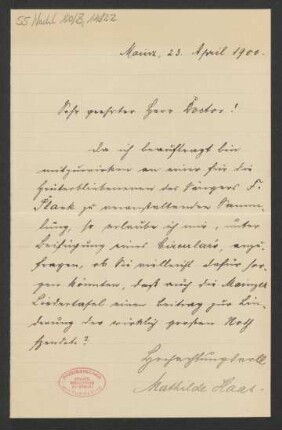 55 Nachl 100/B,
Mainz, 23. April 1900.
Sehr geehrter Herr Doctor!
Da ich beauftragt bin
mitzuwirken an einer für die
Hinterbliebenen des Sängers F.
Plank zu veranstaltenden Samm-
lung, so erlaube ich mir, unter
Beifügung eines Circulars, anzu-
fragen, ob Sie vielleicht dafür sor-
gen könnten, daß auch die Mainzer
Liedertafel einen Beitrag zur Lin-
derung der wirklich großen Noth
spendet?
Hochachtungsvoll
Mathilde Haas.